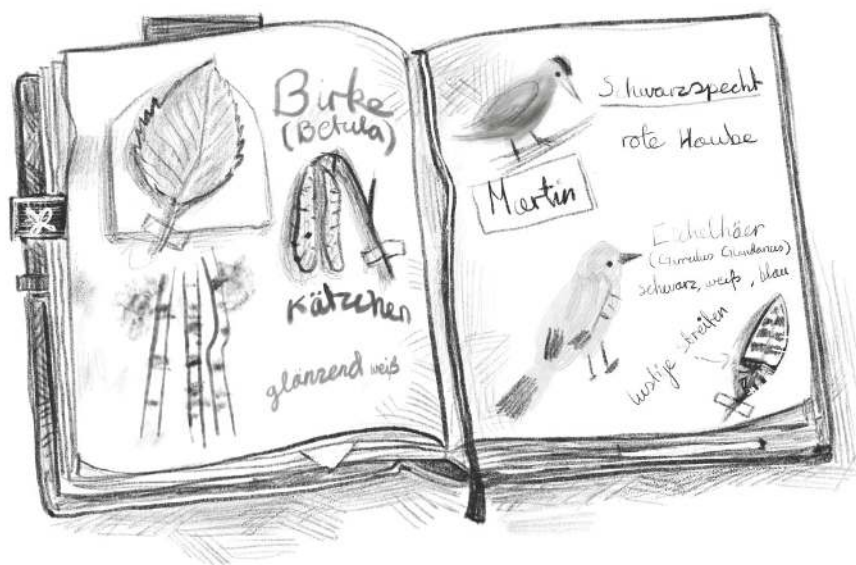 Birke
(Betula)
Kätzchen
glänzend weiß
Schwarzspecht
rote Haube
Martin
Eichelhäer
(Garrulus Glandarius)
schwarz, weiß, blau
lustige streifen